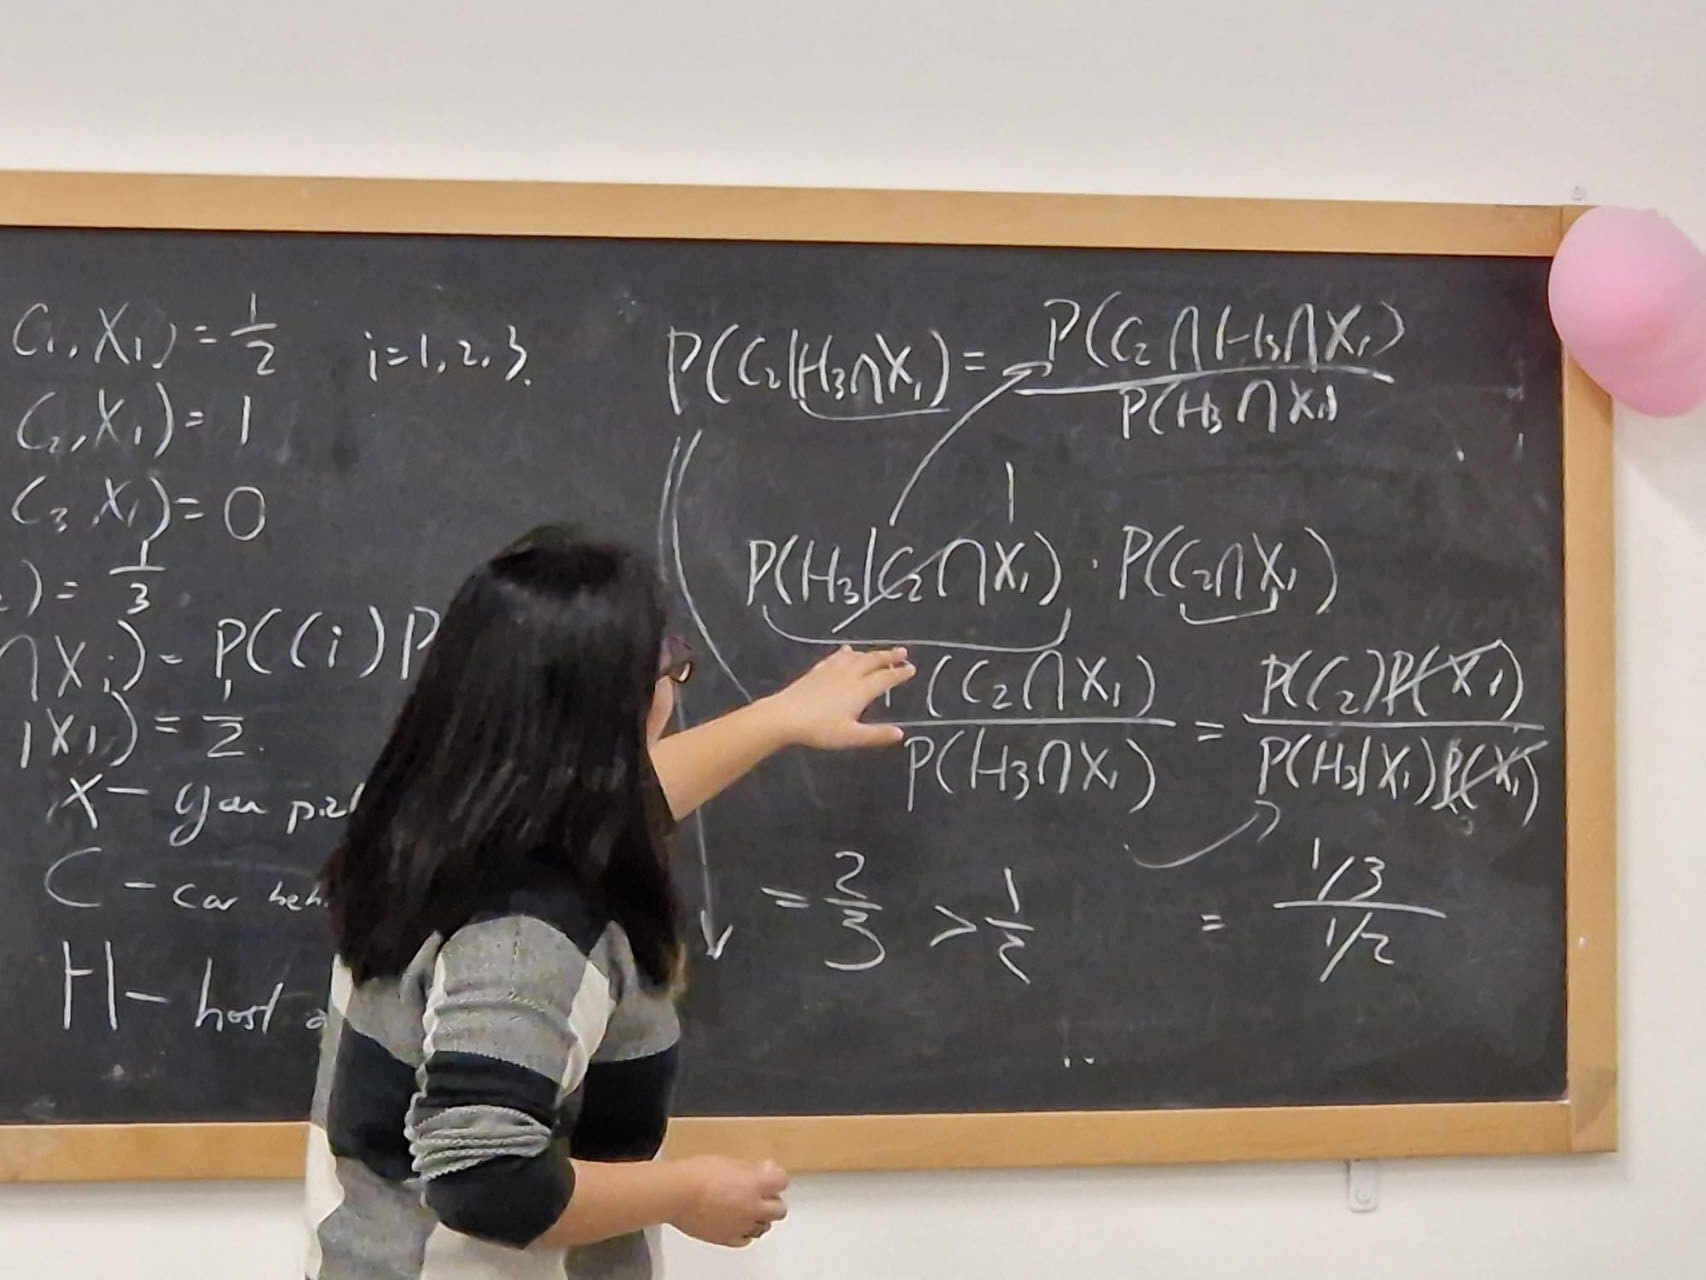 C₁, X₁) = 1/2 i=1,2,3.
C₂, X₁) = 1
C₃, X₁) = 0
) = 1/3
∩Xi) = P(Ci)P
|X₁) = 1/2.
X – you
C – car
H – host
P(C₂|H₃∩X₁) = P(C₂∩H₃∩X₁) / P(H₃∩X₁)
1
P(H₃|C₂∩X₁) · P(C₂∩X₁)
P(C₂∩X₁) / P(H₃∩X₁) = P(C₂)P(X₁) / P(H₃|X₁)P(X₁)
= 2/3 > 1/2 = 1/3 / 1/2